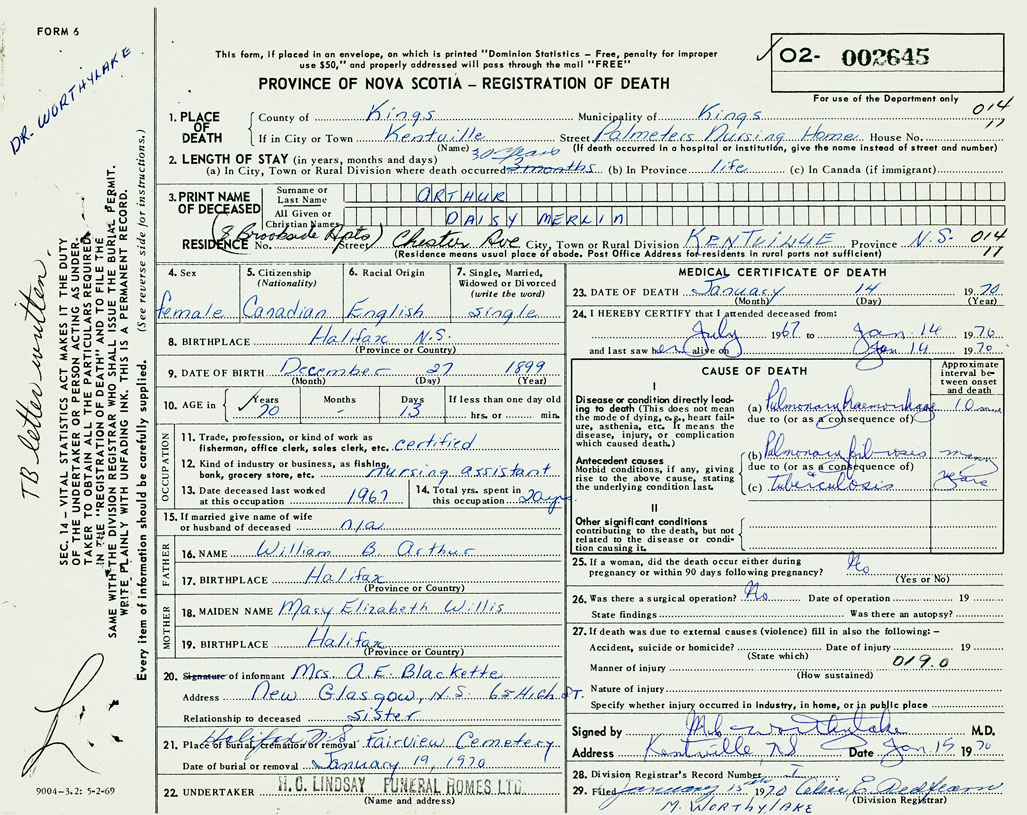 FORM 6
DR. WORTHYLAKE
This form, if placed in an envelope, on which is printed "Dominion Statistics – Free, penalty for improper
use $50," and properly addressed will pass through the mail "FREE"
PROVINCE OF NOVA SCOTIA – REGISTRATION OF DEATH
02- 002645
For use of the Department only
1. PLACE OF DEATH
County of Kings Municipality of Kings 014
If in City or Town Kentville Street Palmeters Nursing Home House No. 11
(Name) (If death occurred in a hospital or institution, give the name instead of street and number)
2. LENGTH OF STAY (in years, months and days) 30 years
(a) In City, Town or Rural Division where death occurred 3 months (b) In Province life (c) In Canada (if immigrant)
3. PRINT NAME OF DECEASED
Surname or Last Name ARTHUR
All Given or Christian Names DAISY MERLIN
(8 Brookside Apts)
RESIDENCE No. Street Chester Ave City, Town or Rural Division KENTVILLE Province N.S. 014
(Residence means usual place of abode. Post Office Address for residents in rural parts not sufficient) 11
4. Sex
female
5. Citizenship
(Nationality)
Canadian
6. Racial Origin
English
7. Single, Married,
Widowed or Divorced
(write the word)
single
8. BIRTHPLACE Halifax N.S.
(Province or Country)
9. DATE OF BIRTH December 27 1899
(Month) (Day) (Year)
10. AGE in Years 70 Months - Days 13 If less than one day old
hrs. or min.
OCCUPATION
11. Trade, profession, or kind of work as
fisherman, office clerk, sales clerk, etc. certified
12. Kind of industry or business, as fishing,
bank, grocery store, etc. nursing assistant
13. Date deceased last worked
at this occupation 1967
14. Total yrs. spent in
this occupation 20 yrs.
15. If married give name of wife
or husband of deceased n/a
FATHER
16. NAME William B. Arthur
17. BIRTHPLACE Halifax
(Province or Country)
MOTHER
18. MAIDEN NAME Mary Elizabeth Willis
19. BIRTHPLACE Halifax
(Province or Country)
20. Signature of informant Mrs. A.E. Blackette
Address New Glasgow, N.S. 65 High ST.
Relationship to deceased sister
Halifax N.S.
21. Place of burial, cremation or removal Fairview Cemetery
Date of burial or removal January 19, 1970
22. UNDERTAKER H. C. LINDSAY FUNERAL HOMES LTD.
(Name and address)
MEDICAL CERTIFICATE OF DEATH
23. DATE OF DEATH January 14 1970
(Month) (Day) (Year)
24. I HEREBY CERTIFY that I attended deceased from:
July 1967 to Jan. 14 1970
and last saw her alive on Jan 14 1970
CAUSE OF DEATH
Approximate
interval be-
tween onset
and death
I
Disease or condition directly lead-
ing to death (This does not mean
the mode of dying, e.g., heart fail-
ure, asthenia, etc. It means the
disease, injury, or complication
which caused death.)
(a) Pulmonary haemorrhage 10 min
due to (or as a consequence of)
Antecedent causes
Morbid conditions, if any, giving
rise to the above cause, stating
the underlying condition last.
(b) Pulmonary fibrosis many
due to (or as a consequence of)
(c) tuberculosis years
II
Other significant conditions
contributing to the death, but not
related to the disease or condi-
tion causing it.
25. If a woman, did the death occur either during
pregnancy or within 90 days following pregnancy? No
(Yes or No)
26. Was there a surgical operation? No Date of operation 19
State findings Was there an autopsy?
27. If death was due to external causes (violence) fill in also the following: –
Accident, suicide or homicide? Date of injury 19
(State which) 019.0
Manner of injury
(How sustained)
Nature of injury
Specify whether injury occurred in Industry, in home, or in public place
Signed by Worthylake M.D.
Address Kentville, NS Date Jan 15 1970
28. Division Registrar's Record Number 1
29. Filed January 15th 1970
(Division Registrar)
M. WORTHYLAKE
TB letter written.
SEC. 14 – VITAL STATISTICS ACT MAKES IT THE DUTY
OF THE UNDERTAKER OR PERSON ACTING AS UNDER-
TAKER TO OBTAIN ALL THE PARTICULARS REQUIRED
IN THE "REGISTRATION OF DEATH" AND TO FILE THE
SAME WITH THE DIVISION REGISTRAR WHO SHALL ISSUE THE BURIAL PERMIT.
WRITE PLAINLY WITH UNFADING INK. THIS IS A PERMANENT RECORD.
Every item of information should be carefully supplied. (See reverse side for instructions.)
9004-3.2: 5-2-69